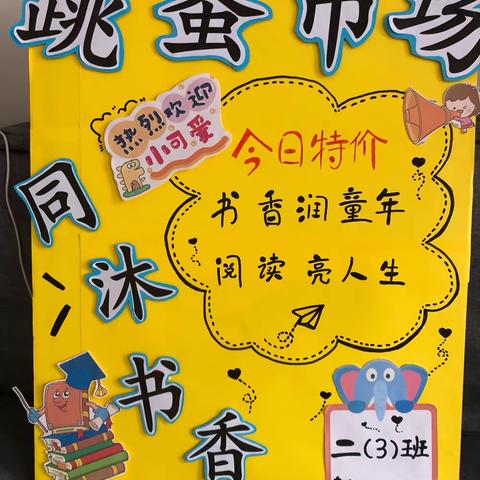 跳蚤市场
热烈欢迎
小可爱
今日特价
书香润童年
阅读亮人生
同沐书香
二(3)班